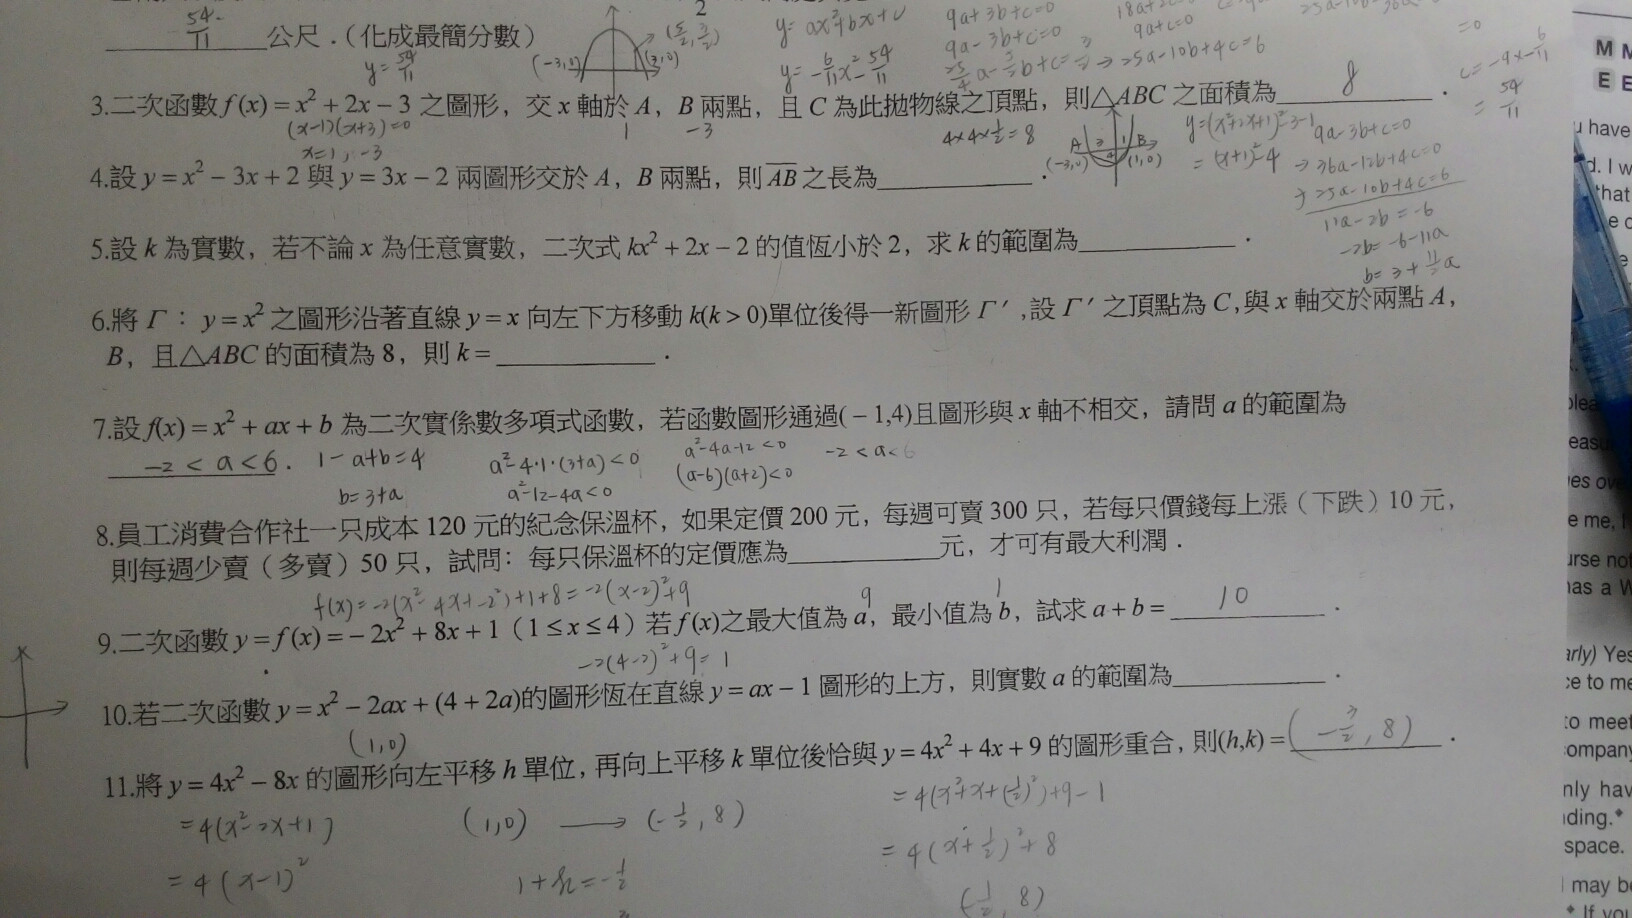 54
11
公尺．（化成最簡分數）
y= 54/11
(-3,0)
(3,0)
(5/2, 3/2)
2
y= ax²+bx+c
y= -6/11x² 54/11
9a+3b+c=0
9a-3b+c=0
9a+c=0
→25a-10b+4c=6
=0
= 54/11
3.二次函數 f(x) = x² + 2x − 3 之圖形，交 x 軸於 A，B 兩點，且 C 為此拋物線之頂點，則△ABC 之面積為 8 ．
(x-1)(x+3)=0
x=1, -3
1 -3
4×4×1/2=8
A B
(-3,0) (1,0)
= (x+1)²-4
9a-3b+c=0
→ 36a-12b+4c=0
25a-10b+4c=6
11a-2b=-6
-2b=-6-11a
b= 3+11/2a
4.設 y = x² − 3x + 2 與 y = 3x − 2 兩圖形交於 A，B 兩點，則 AB 之長為 ．
5.設 k 為實數，若不論 x 為任意實數，二次式 kx² + 2x − 2 的值恆小於 2，求 k 的範圍為 ．
6.將 Γ： y = x² 之圖形沿著直線 y = x 向左下方移動 k(k > 0)單位後得一新圖形 Γ′ ,設 Γ′ 之頂點為 C,與 x 軸交於兩點 A，
B，且△ABC 的面積為 8，則 k = ．
7.設 f(x) = x² + ax + b 為二次實係數多項式函數，若函數圖形通過(－1,4)且圖形與 x 軸不相交，請問 a 的範圍為
-2 < a < 6 ． 1-a+b=4
b=3+a
a²-4·1·(3+a)<0
a²-12-4a<0
a²-4a-12<0
(a-6)(a+2)<0
-2<a<6
8.員工消費合作社一只成本 120 元的紀念保溫杯，如果定價 200 元，每週可賣 300 只，若每只價錢每上漲（下跌）10 元，
則每週少賣（多賣）50 只，試問：每只保溫杯的定價應為 元，才可有最大利潤．
f(x)=-2(x²-4x+-2²)+1+8=-2(x-2)²+9
9 1
9.二次函數 y = f(x) = − 2x² + 8x + 1（1 ≤ x ≤ 4）若 f(x)之最大值為 a，最小值為 b，試求 a + b = 10 ．
-2(4-2)²+9=1
10.若二次函數 y = x² − 2ax + (4 + 2a)的圖形恆在直線 y = ax − 1 圖形的上方，則實數 a 的範圍為 ．
(1,0)
11.將 y = 4x² − 8x 的圖形向左平移 h 單位，再向上平移 k 單位後恰與 y = 4x² + 4x + 9 的圖形重合，則(h,k) = (-3/2, 8) ．
=4(x²-2x+1)
=4(x-1)²
(1,0) → (-1/2, 8)
1+h=-1/2
=4(x²+x+(1/2)²)+9-1
=4(x+1/2)²+8
(-1/2, 8)
M
E
have
that
e me,
urse not
has a W
arly) Yes
ce to me
to meet
ompany
nly hav
nding.
space.
I may be
If you